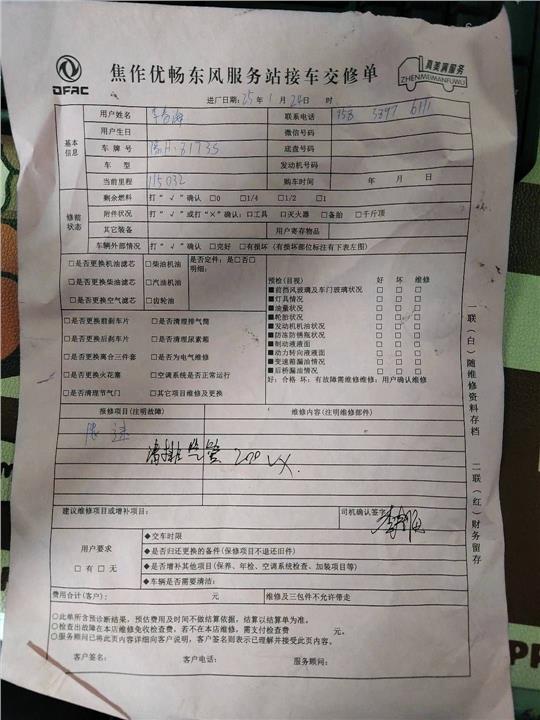 DFAC
焦作优畅东风服务站接车交修单
真美满服务
ZHENMEIMANFUWU
进厂日期：25年1月24日 时
基本信息
用户姓名 李春海 联系电话 358 3397 6111
用户生日 微信号码
车牌号 豫H·81735 底盘号码
车型 发动机号码
当前里程 115032 购车时间 年 月 日
修前状态
剩余燃料 打“√”确认 □0 □1/4 □1/2 □1
附件状况 打“√”或打“×”确认：□工具 □灭火器 □备胎 □千斤顶
其它装备 用户寄存物品
车辆外部情况 打“√”确认 □完好 □有损坏（有损坏部位标注有下表左图）
□是否更换机油滤芯 □柴油机油 是否定件：是□否□
明细：
□是否更换柴油滤芯 □汽油机油
□是否更换空气滤芯 □齿轮油
□是否更换前刹车片 □是否清理排气筒
□是否更换后刹车片 □是否清理尿素箱
□是否更换离合三件套 □是否为电气维修
□是否更换火花塞 □空调系统是否正常运行
□是否清理节气门 □其它项目维修及更换
预检(目视) 好 坏 维修
■前挡风玻璃及车门玻璃状况 □ □ □
■灯具情况 □ □ □
■油量状况 □ □ □
■轮胎状况 □ □ □
■发动机机油状况 □ □ □
■防冻防锈瓶状况 □ □ □
■制动液液面 □ □ □
■动力转向液液面 □ □ □
■变速箱漏油情况 □ □ □
■后桥漏油情况 □ □ □
好：合格 坏：有故障需维修维修：用户确认维修
报修项目(注明故障) 维修内容(注明维修部件)
限速
清排气管 200 VX.
建议维修项目或增补项目： 司机确认签字：
用户要求
□有 □无
◆交车时限
◆是否归还更换的备件(保修项目不退还旧件)
◆是否增补其他项目(保养、年检、空调系统检查、加装项目等)
◆车辆是否需要清洁：
费用合计(客户)： 元 维修及三包件不允许带走
○此单所含预诊断结果，预估费用及时间不做结算依据，结算以结算单为准。
○检查出故障在本店维修免收检查费，若不在本店维修，需支付检查费 元。
○服务顾问已将此页内容详细向客户说明，客户签名则表示已理解并接受此页内容。
客户签名： 客户电话： 服务顾问：
一联（白）随维修资料存档
二联（红）财务留存